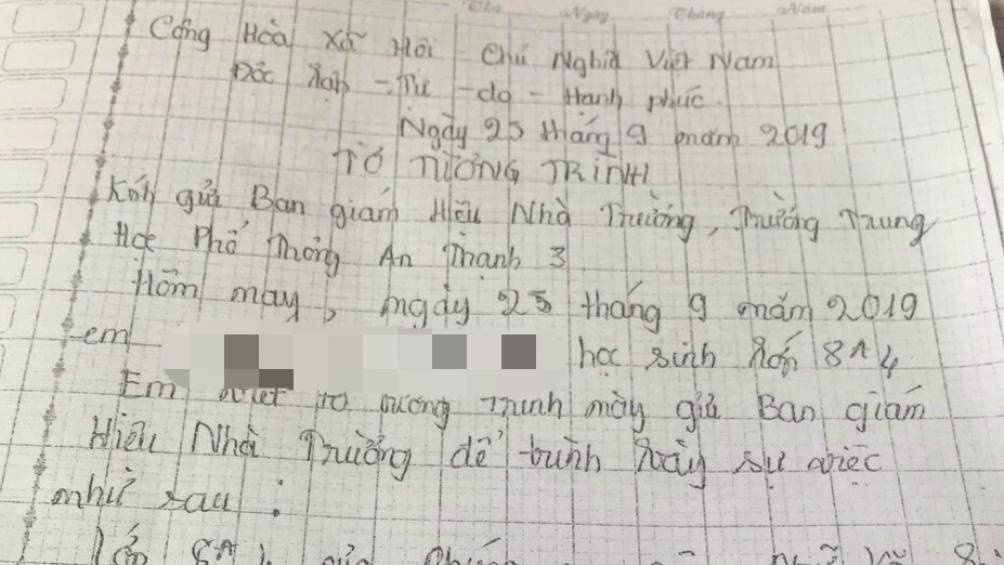 Thứ Ngày Tháng Năm
Cộng Hòa Xã Hội Chủ Nghĩa Việt Nam
Độc lập - Tự - do - Hạnh phúc
Ngày 25 tháng 9 năm 2019
TỜ TƯỜNG TRÌNH
Kính gửi Ban giám Hiệu Nhà Trường, Trường Trung
Học Phổ Thông An Thạnh 3
Hôm nay, ngày 25 tháng 9 năm 2019
em học sinh lớp 8A4
Em viết tờ tường trình này gửi Ban giám
Hiệu Nhà Trường để trình bày sự việc
như sau :
lớp